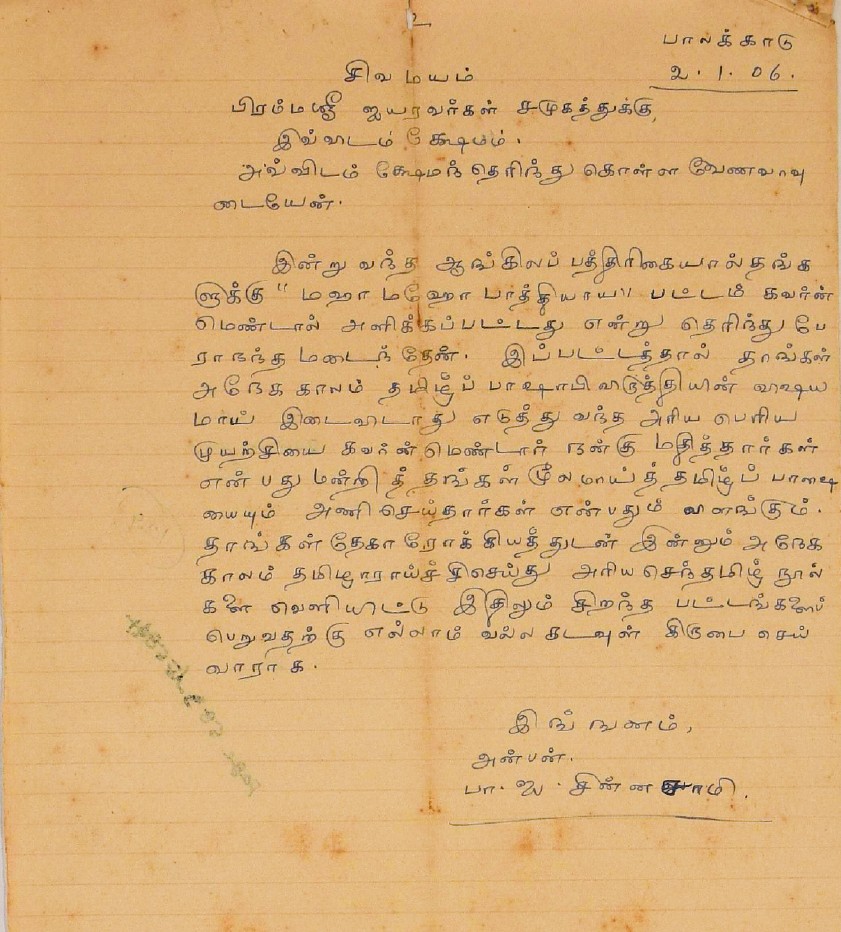 உ
பாலக்காடு
2.1.06.
சிவமயம்
பிரம்மஸ்ரீ ஐயரவர்கள் சமுகத்துக்கு,
இவ்விடம் க்ஷேமம்.
அவ்விடம் க்ஷேமந்தெரிந்து கொள்ள வேணவாவு
டையேன்.
இன்று வந்த ஆங்கிலப் பத்திரிகையால் தங்க
ளுக்கு "மஹா மஹோ பாத்தியாய" பட்டம் கவர்ன்
மெண்டால் அளிக்கப்பட்டது என்று தெரிந்து பே
ராநந்த மடைந்தேன். இப்பட்டத்தால் தாங்கள்
அநேக காலம் தமிழ்ப் பாஷாபிவிருத்தியின் விஷய
மாய் இடைவிடாது எடுத்து வந்த அரிய பெரிய
முயற்சியை கவர்ன்மெண்டார் நன்கு மதித்தார்கள்
என்பது மன்றித் தங்கள் மூலமாய்த் தமிழ்ப் பாஷை
யையும் அணி செய்தார்கள் என்பதும் விளங்கும்.
தாங்கள் தேகாரோக்கியத்துடன் இன்னும் அநேக
காலம் தமிழாராய்ச்சிசெய்து அரிய செந்தமிழ் நூல்
களை வெளியிட்டு இதிலும் சிறந்த பட்டங்களைப்
பெறுவதற்கு எல்லாம் வல்ல கடவுள் கிருபை செய்
வாராக.
இங்ஙனம்,
அன்பன்.
பா. ஐ. சின்னசாமி.